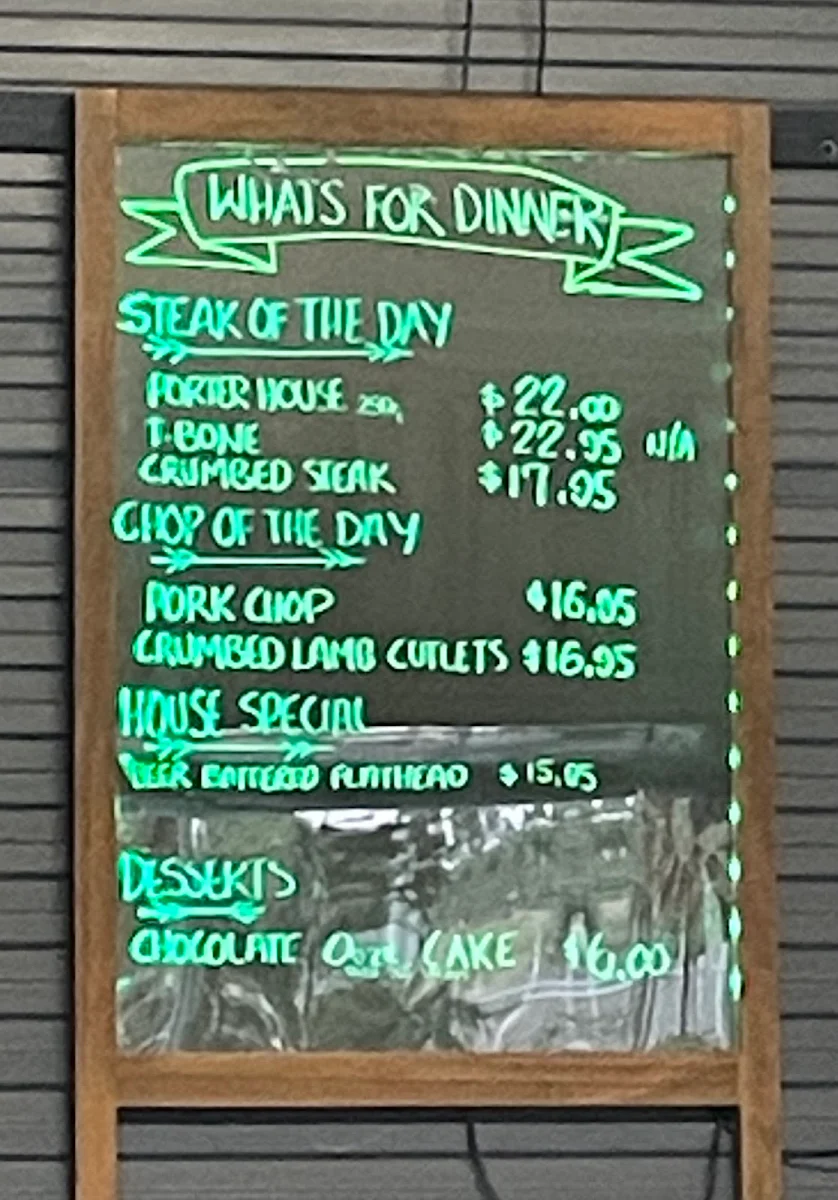 WHATS FOR DINNER
STEAK OF THE DAY
PORTER HOUSE 250g $22.00
T-BONE $22.95 N/A
CRUMBED STEAK $17.95
CHOP OF THE DAY
PORK CHOP $16.95
CRUMBED LAMB CUTLETS $16.95
HOUSE SPECIAL
BEER BATTERED FLATHEAD $15.95
DESSERTS
CHOCOLATE CAKE $6.00